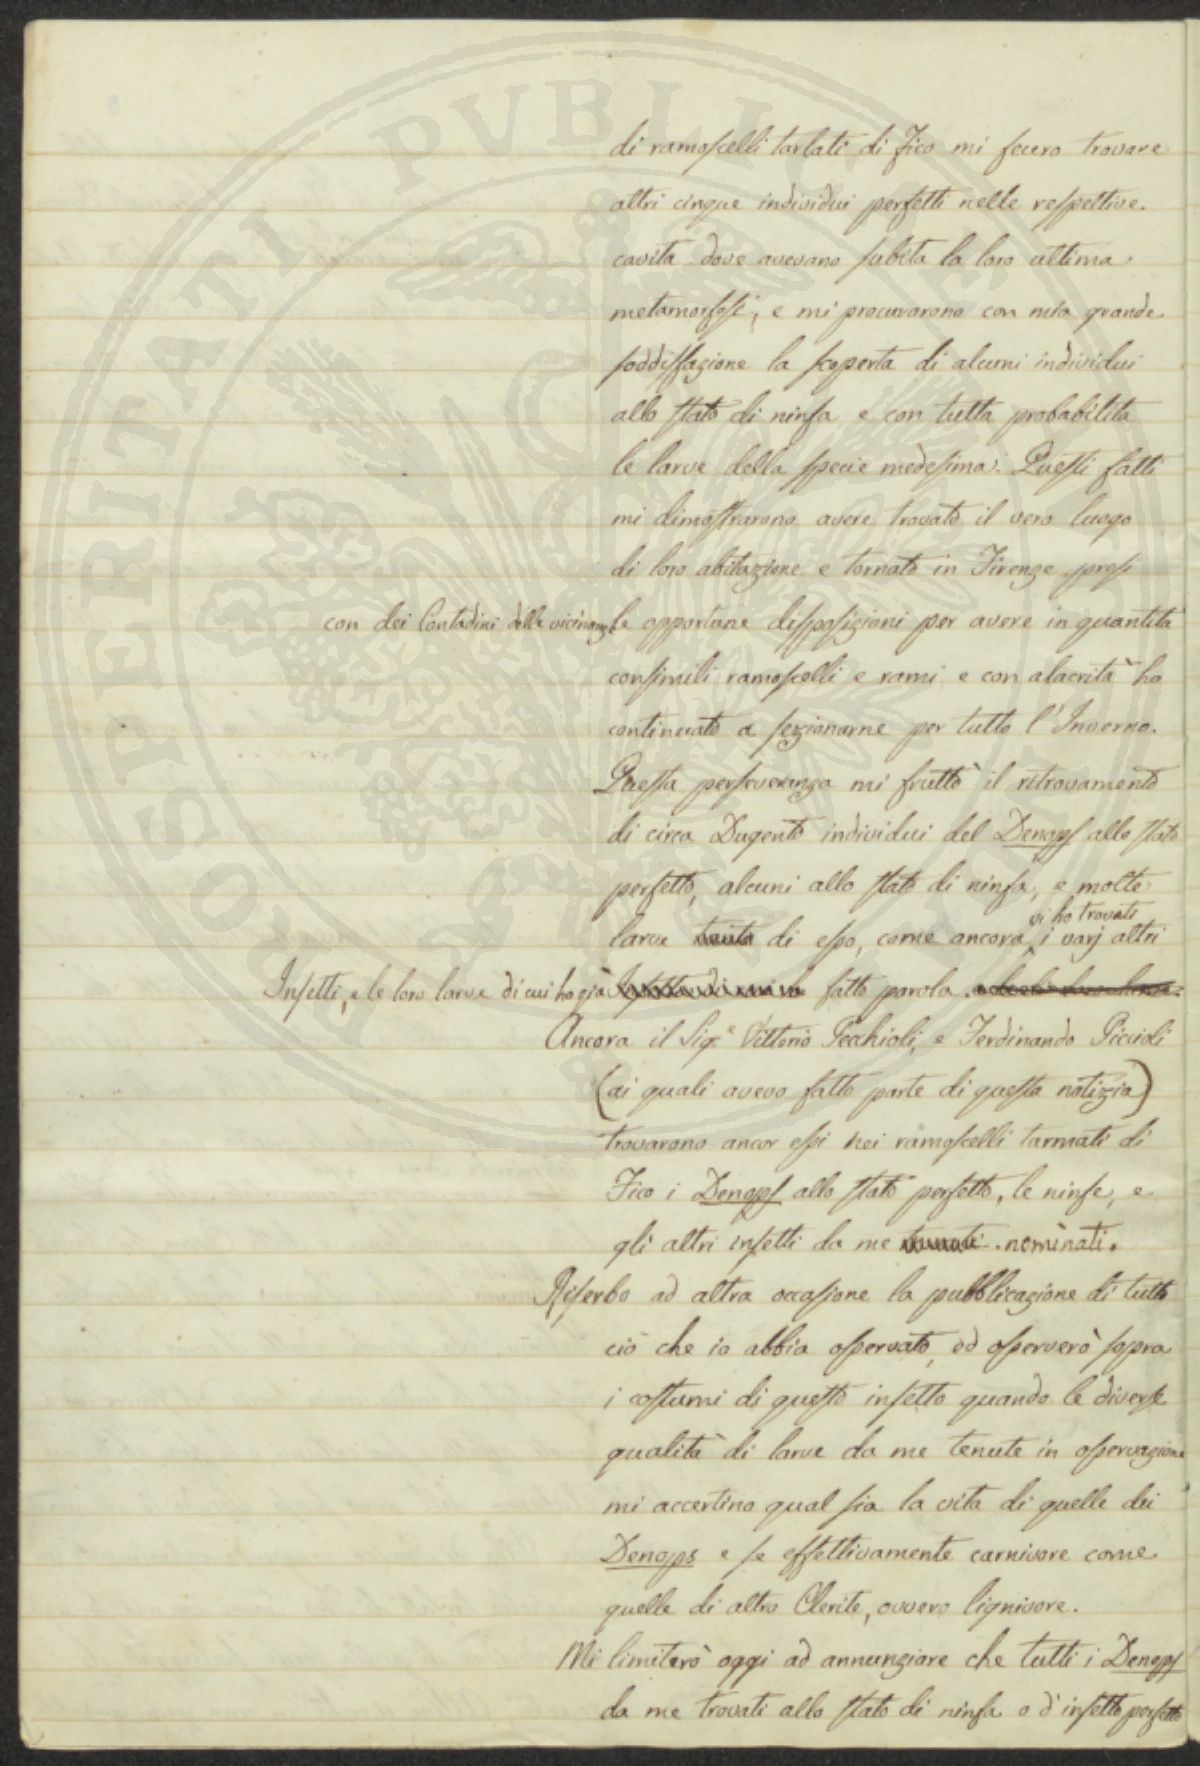 PROSPERITATI PVBLICAE
di ramoscelli tarlati di Fico mi fecero trovare
altri cinque individui perfetti nelle respettive
cavita dove avevano subita la loro ultima
metamorfosi, e mi procurarono con mia grande
soddisfazione la scoperta di alcuni individui
allo stato di ninfa e con tutta probabilita
le larve della specie medesima. Questi fatti
mi dimostrarono avere trovato il vero luogo
di loro abitazione e tornato in Firenze presi
con dei Contadini delle vicinanze le opportune disposizioni per avere in quantità
consimili ramoscelli e rami e con alacrità ho
continuato a sezionarne per tutto l'Inverno.
Questa perseveranza mi fruttò il ritrovamento
di circa Dugento individui del Denops allo stato
perfetto, alcuni allo stato di ninfa, e molte
vi ho trovati
larve di esso, come ancora i varj altri
Insetti, e le loro larve di cui ho già fatto parola.
Ancora il Sig.e Vittorio Pecchioli, e Ferdinando Piccioli
(ai quali avevo fatto parte di questa notizia)
trovarono ancor essi nei ramoscelli tarmati di
Fico i Denops allo stato perfetto, le ninfe, e
gli altri insetti da me nominati.
Riserbo ad altra occasione la pubblicazione di tutto
ciò che io abbia osservato, od osserverò sopra
i costumi di questo insetto quando le diverse
qualità di larve da me tenute in osservazione
mi accertino qual sia la vita di quelle dei
Denops e se effettivamente carnivore come
quelle di altro Clerite, ovvero lignivore.
Mi limiterò oggi ad annunziare che tutti i Denops
da me trovati allo stato di ninfa o d'insetto perfetto